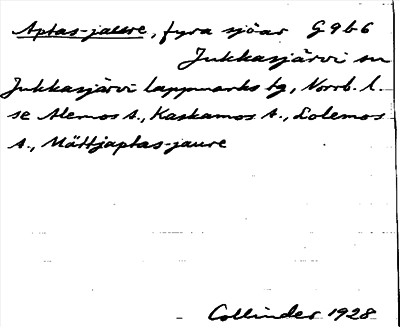 Aptas-jaure, fyra sjöar G9b6
Jukkasjärvi sn
Jukkasjärvi lappmarks tg, Norrb. l.
se Alemos A., Kaskamos A., Lolemos
A., Mättjaptas-jaure
Collinder 1928